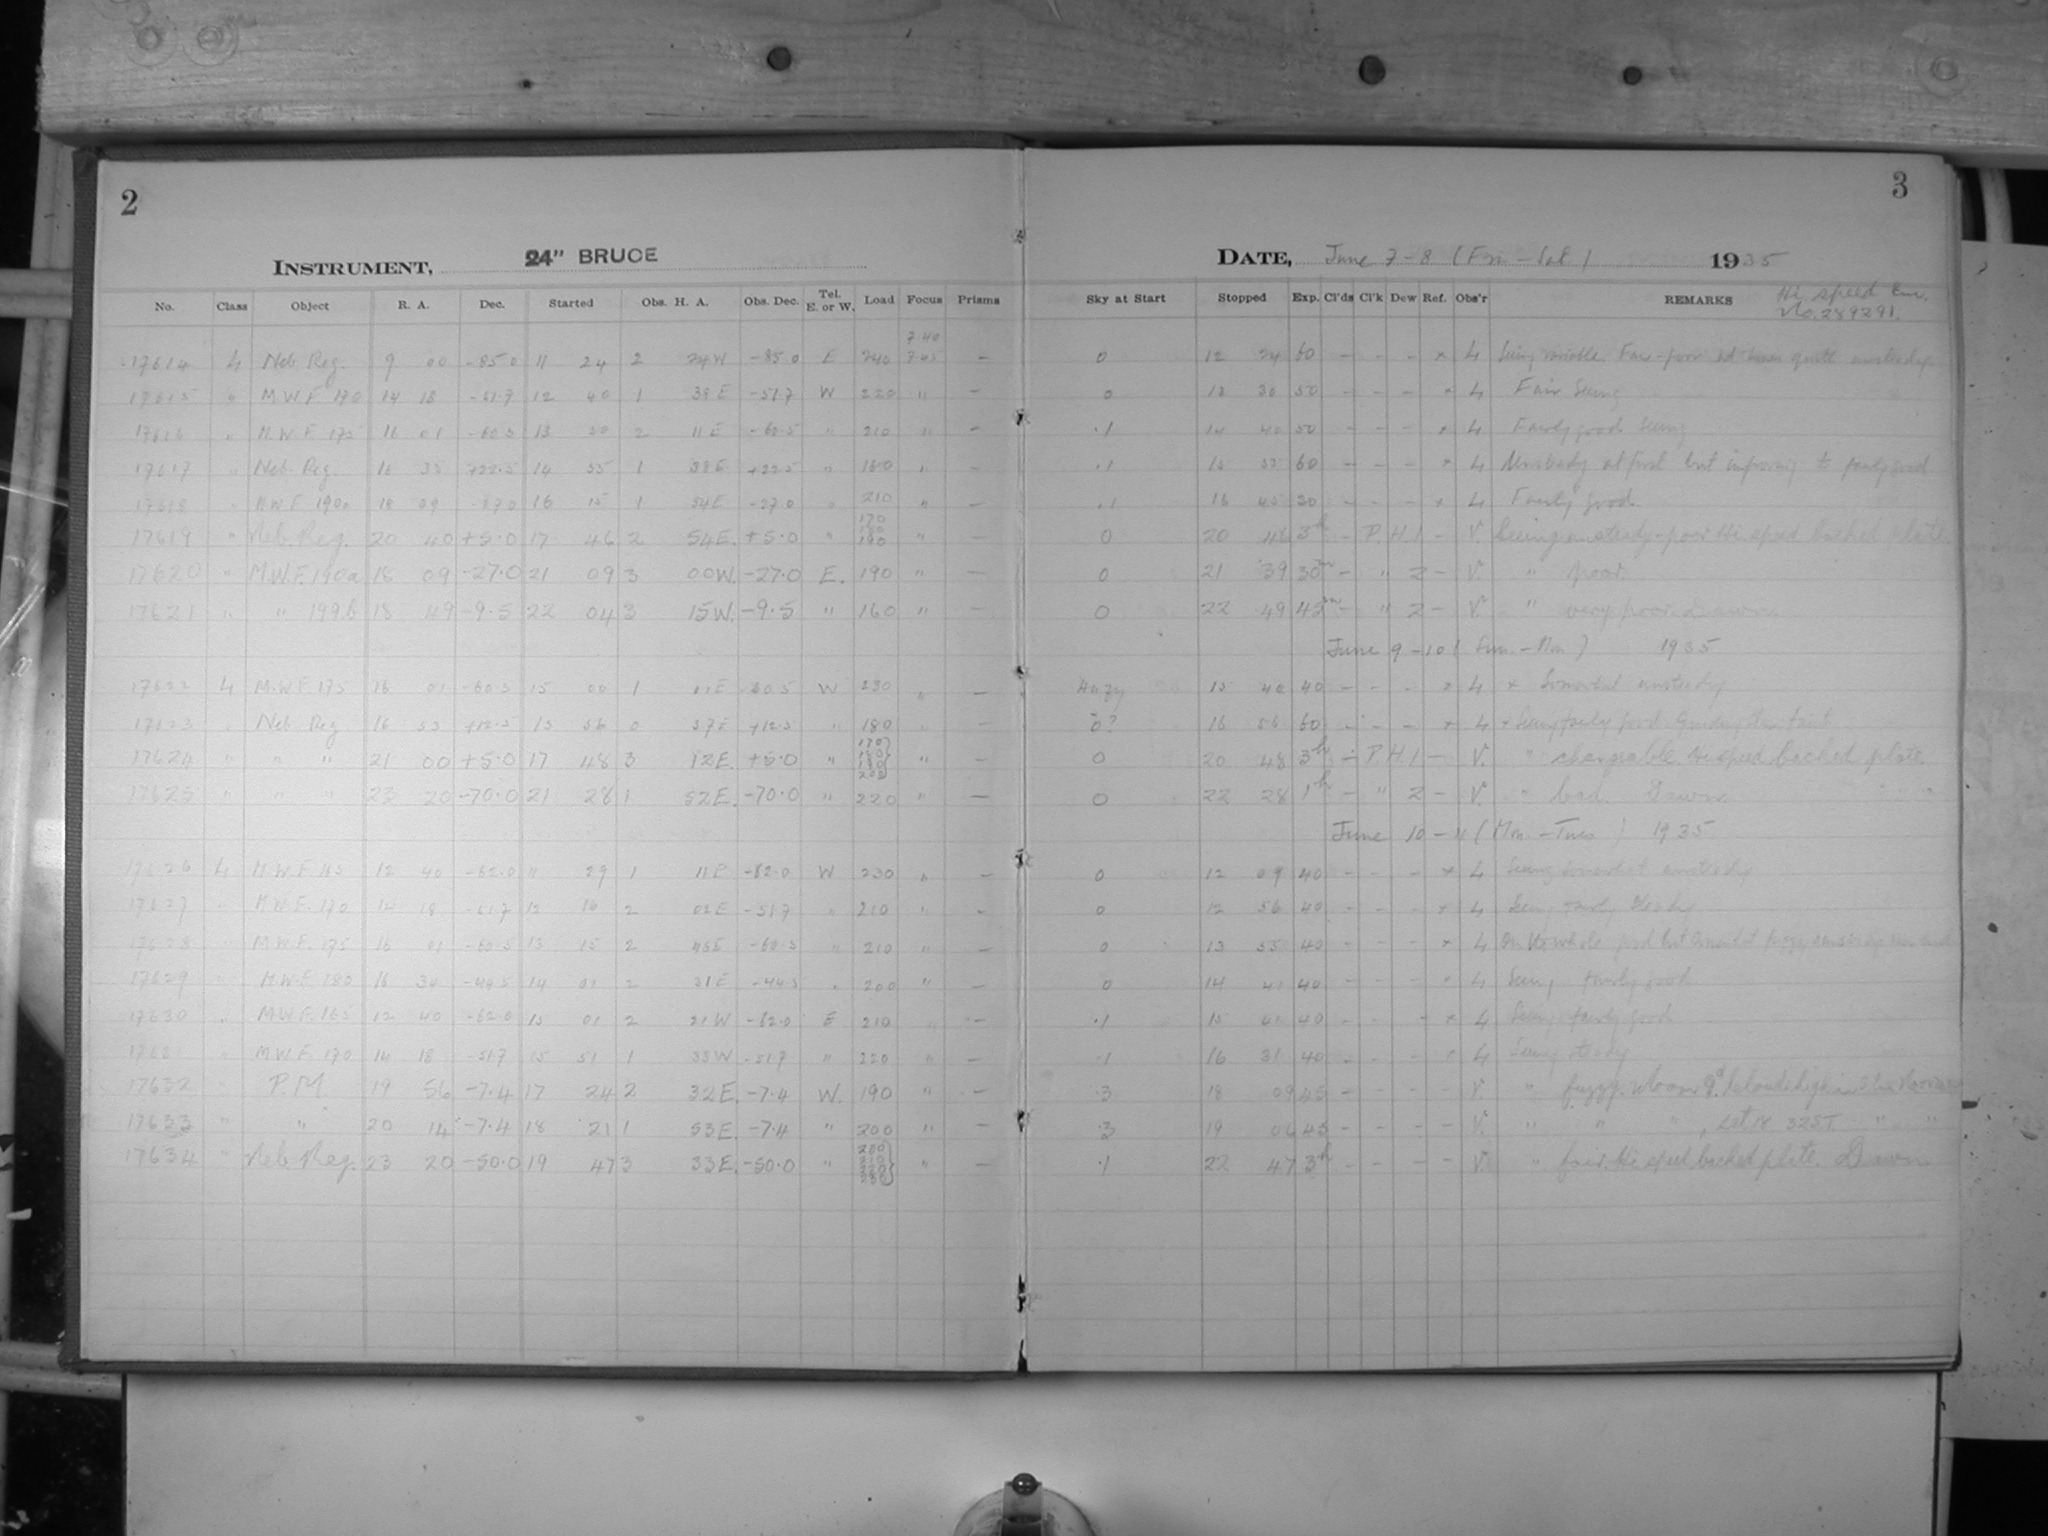 2
3
INSTRUMENT, 24" BRUCE
DATE, June 7-8 (Fri - Sat) 1935
No. Class Object R. A. Dec. Started Obs. H. A. Obs. Dec. Tel. E. or W. Load Focus Prisms Sky at Start Stopped Exp. Cl'ds Cl'k Dew Ref. Obs'r REMARKS Hi speed Em. No. 289291.
17614 4 Neb. Reg. 9 00 -85.0 11 24 2 24W -85.0 E 240 7.40 7.45 — 0 12 24 60 - - - × 4 Seeing variable Fair - poor at times quite unsteady
17615 " M.W.F. 170 14 18 -51.7 12 40 1 38E -51.7 W 220 " — 0 13 30 50 - - - × 4 Fair Seeing
17616 " M.W.F. 175 16 01 -60.5 13 50 2 11E -60.5 " 210 " — .1 14 40 50 - - - × 4 Fairly good Seeing
17617 " Neb. Reg. 16 35 +22.5 14 55 1 38E +22.5 " 160 " — .1 15 55 60 - - - × 4 Unsteady at first but improving to fairly good
17618 " M.W.F. 190a 18 09 -27.0 16 15 1 54E -27.0 " 210 " — .1 16 45 30 - - - × 4 Fairly good
17619 " Neb. Reg. 20 40 +5.0 17 46 2 54E. +5.0 " 170 180 190 " — 0 20 46 3h - P.H. 1 - V. Seeing unsteady - poor Hi speed backed plate
17620 " M.W.F. 190a 18 09 -27.0 21 09 3 00W. -27.0 E. 190 " — 0 21 39 30m - " 2 - V. " poor.
17621 " " 199b 18 49 -9.5 22 04 3 15W. -9.5 " 160 " — 0 22 49 45m - " 2 - V. " very poor. Dawn
June 9-10 (Sun. - Mon) 1935
17622 4 M.W.F. 175 16 01 -60.5 15 00 1 01E -60.5 W 230 " — Hazy 15 40 40 - - - × 4 × Somewhat unsteady
17623 " Neb. Reg 16 53 +12.5 15 56 0 57E +12.5 " 180 " — 0? 16 56 60 - - - × 4 × Seeing fairly good
17624 " " " 21 00 +5.0 17 48 3 12E. +5.0 " 170 180 190 200 " — 0 20 48 3h - P.H. 1 - V. " changeable. Hi speed backed plate.
17625 " " " 23 20 -70.0 21 28 1 52E. -70.0 " 220 " — 0 22 28 1h - " 2 - V. " bad. Dawn.
June 10-11 (Mon. - Tues) 1935
17626 4 M.W.F. 165 12 40 -62.0 11 29 1 11E -62.0 W 230 " — 0 12 09 40 - - - × 4 Seeing somewhat unsteady
17627 " M.W.F. 170 14 18 -51.7 12 16 2 02E -51.7 " 210 " — 0 12 56 40 - - - × 4 Seeing fairly steady
17628 " M.W.F. 175 16 01 -60.5 13 15 2 46E -60.5 " 210 " — 0 13 55 40 - - - × 4 On the whole good but somewhat
17629 " M.W.F. 180 16 32 -44.5 14 01 2 31E -44.5 " 200 " — 0 14 41 40 - - - " 4 Seeing fairly good
17630 " M.W.F. 165 12 40 -62.0 15 01 2 21W -62.0 E 210 " — .1 15 41 40 - - - × 4 Seeing fairly good
17631 " M.W.F. 170 14 18 -51.7 15 51 1 33W -51.7 " 220 " — .1 16 31 40 - - - × 4 Seeing steady
17632 " P.M. 19 56 -7.4 17 24 2 32E. -7.4 W. 190 " — .3 18 09 45 - - - - V. " fuzzy. Moon
17633 " " 20 14 -7.4 18 21 1 53E. -7.4 " 200 " — .3 19 06 45 - - - - V. " " "
17634 " Neb. Reg. 23 20 -50.0 19 47 3 33E. -50.0 " " — .1 22 47 3h - - - - V. " fair. Hi speed backed plate. Dawn.